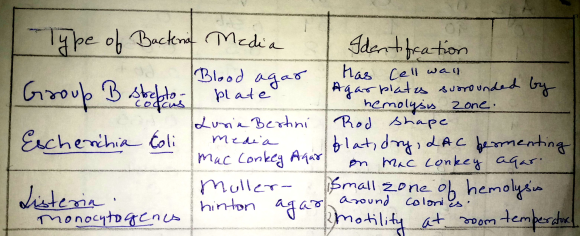 Type of Bacteria Media Identification
Group B strepto-
coccus
Blood agar
plate
Has cell wall
Agar plates surrounded by
hemolysis zone.
Escherichia Coli
Luria Bertini
Media
Mac Conkey Agar
Rod shape
flat, dry, LAC fermenting
on Mac conkey agar.
Listeria
monocytogenus
Muller-
hinton agar
1) Small zone of hemolysis
around colonies.
2) Motility at room temperature